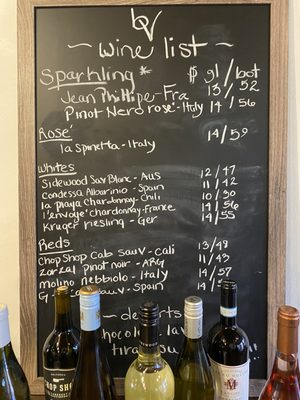 bv
~ wine list ~
Sparkling * $ gl / bot
Jean Phillipe - Fra 13 / 52
Pinot Nero rosé - Italy 14 / 56
Rosé
la Spinetta - Italy 14 / 59
Whites
Sidewood Sav Blanc - Aus 12 / 47
Condessa Albarinio - Spain 11 / 42
la playa chardonnay - Chili 10 / 30
l'envoye chardonnay - France 14 / 56
Kruger riesling - Ger 14 / 55
Reds
Chop Shop Cab Sauv - Cali 13 / 48
Zorzal pinot noir - ARG 11 / 43
Molino Nebbiolo - Italy 14 / 57
Sauv - Spain
~ desserts
tira
CHOP SHOP
M